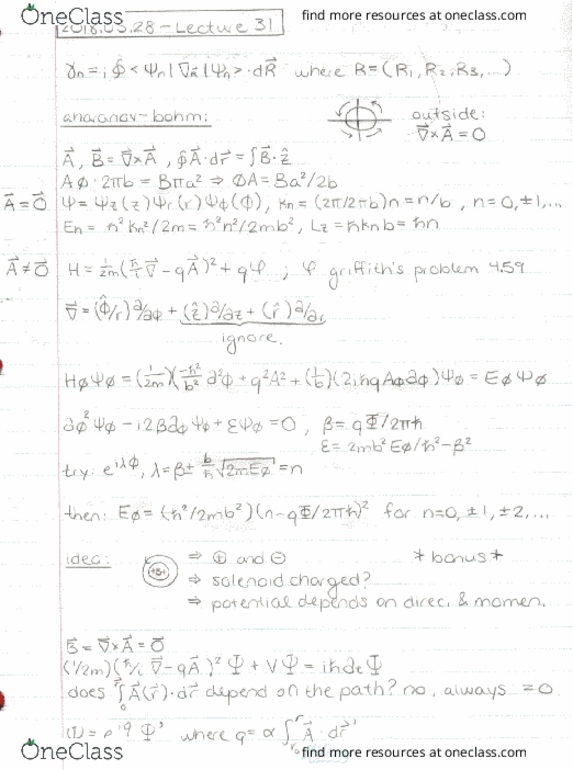 OneClass
find more resources at oneclass.com
2018.03.28 - Lecture 31
γn = i ∮ <Ψn| ∇R |Ψn> · dR⃗ where R = (R1, R2, R3, ...)
aharanov-bohm:
outside:
∇⃗×A⃗ = 0
A⃗, B⃗ = ∇⃗×A⃗, ∮A⃗·dr⃗ = ∫B⃗·ẑ
Aϕ·2πb = Bπa² ⇒ ΦA = Ba²/2b
A⃗ = 0⃗ Ψ = Ψz(z)Ψr(r)Ψϕ(ϕ), Kn = (2π/2πb)n = n/b, n = 0, ±1, ...
En = ħ²Kn²/2m = ħ²n²/2mb², Lz = ħknb = ħn
A⃗ ≠ 0⃗ H = 1/2m(ħ/i ∇⃗ - qA⃗)² + qφ ; φ griffith's problem 4.59
∇⃗ = (ϕ̂/r)∂/∂ϕ + (ẑ)∂/∂z + (r̂)∂/∂r
ignore.
HϕΨϕ = (1/2m)(-ħ²/b² ∂²ϕ + q²A² + (1/b)(2iħqAϕ∂ϕ)Ψϕ = EϕΨϕ
∂ϕ²Ψϕ - i2β∂ϕΨϕ + εΨϕ = 0, β = qΦ/2πħ
ε = 2mb²Eϕ/ħ² - β²
try: e^iλϕ, λ = β ± b/ħ √2mEϕ = n
then: Eϕ = (ħ²/2mb²)(n - qΦ/2πħ)² for n = 0, ±1, ±2, ...
idea: ⇒ ⊕ and ⊖ *bonus*
⇒ solenoid charged?
⇒ potential depends on direc. & momen.
B⃗ = ∇⃗×A⃗ = 0⃗
(1/2m)(ħ/i ∇⃗ - qA⃗)²Ψ + VΨ = iħ∂tΨ
does ∫A⃗(r⃗)·dr⃗ depend on the path? no, always = 0
Ψ = e^ig Ψ' where g = α∫A⃗·dr⃗'
OneClass
find more resources at oneclass.com